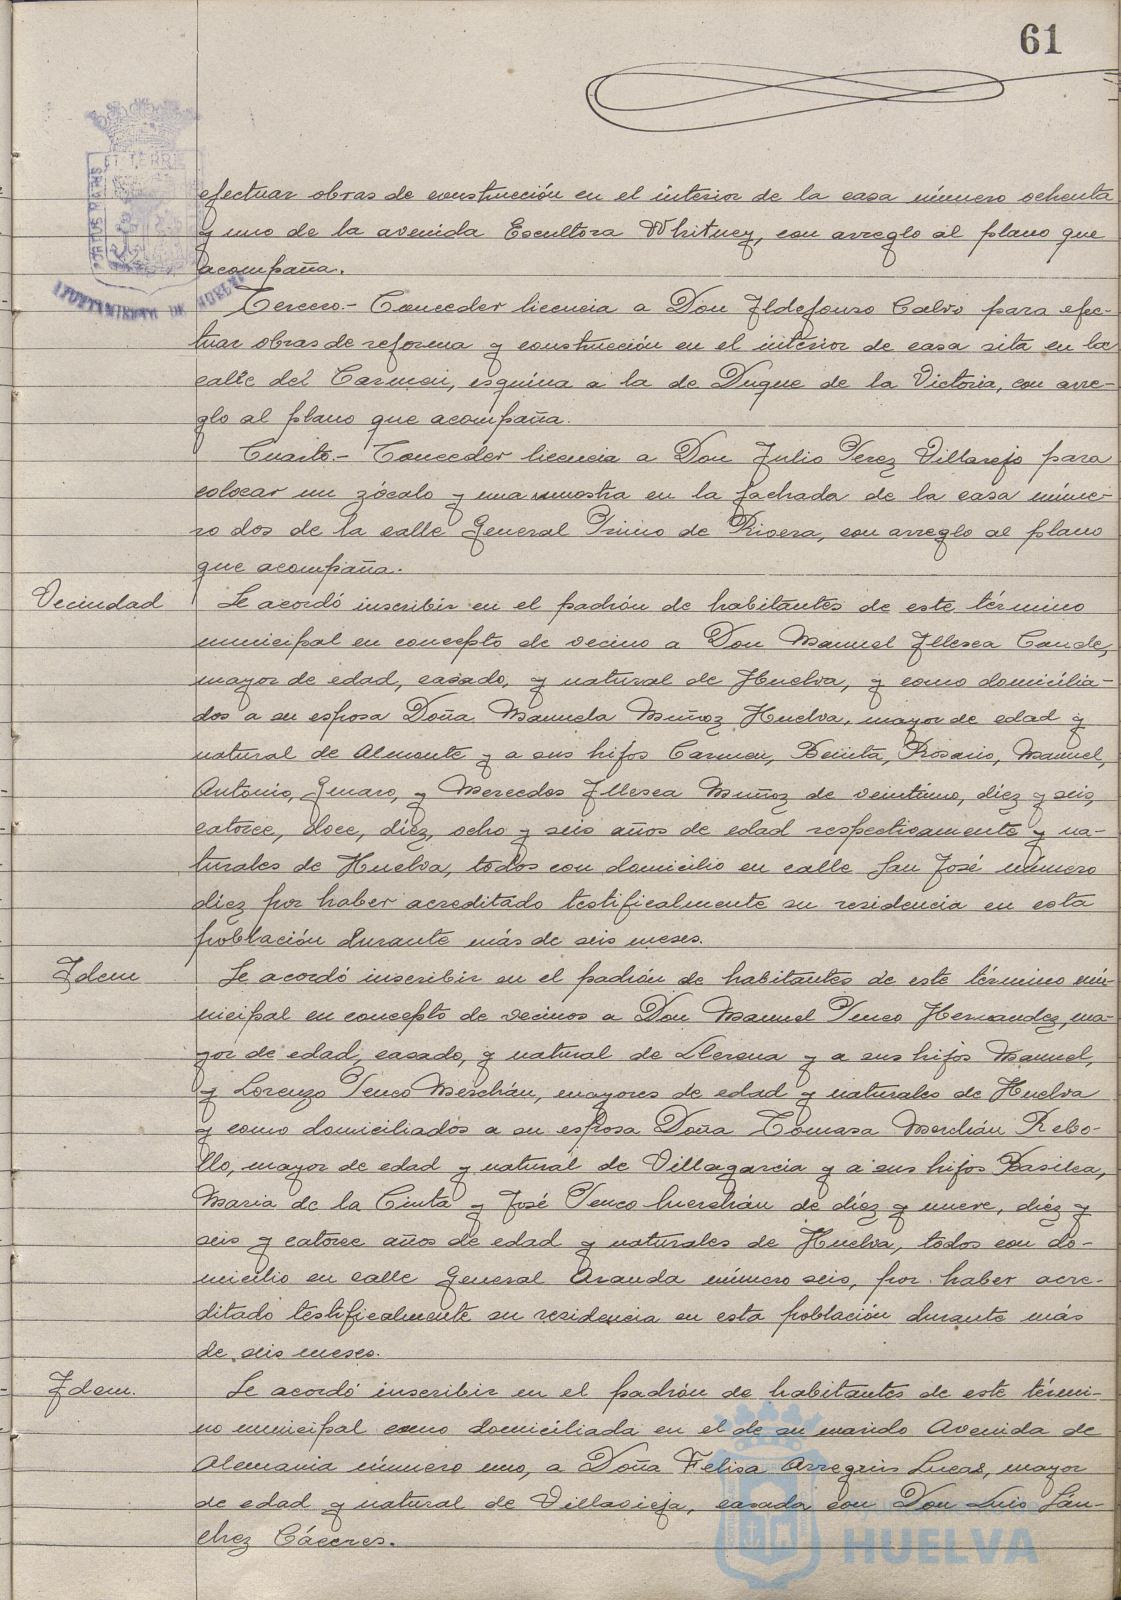 61
efectuar obras de construcción en el interior de la casa número ochenta
y uno de la avenida Escultora Whitney, con arreglo al plano que
acompaña.
AYUNTAMIENTO DE HUELVA
Tercero.- Conceder licencia a Don Ildefonso Calvo para efec-
tuar obras de reforma y construcción en el interior de casa sita en la
calle del Carmen, esquina a la de Duque de la Victoria, con arre-
glo al plano que acompaña.
Cuarto.- Conceder licencia a Don Julio Perez Villarejo para
colocar un zócalo y una muestra en la fachada de la casa núme-
ro dos de la calle General Primo de Rivera, con arreglo al plano
que acompaña.
Vecindad
Se acordó inscribir en el padrón de habitantes de este término
municipal en concepto de vecino a Don Manuel Illesca Conde,
mayor de edad, casado, y natural de Huelva, y como domicilia-
dos a su esposa Doña Manuela Muñoz Huelva, mayor de edad y
natural de Almonte y a sus hijos Carmen, Benita, Rosario, Manuel,
Antonio, Genaro, y Mercedes Illesca Muñoz de veintiuno, diez y seis,
catorce, doce, diez, ocho y seis años de edad respectivamente y na-
turales de Huelva, todos con domicilio en calle San José número
diez por haber acreditado testificalmente su residencia en esta
población durante más de seis meses.
Idem
Se acordó inscribir en el padrón de habitantes de este término mu-
nicipal en concepto de vecinos a Don Manuel Penco Hernandez, ma-
yor de edad, casado, y natural de Llerena y a sus hijos Manuel,
y Lorenzo Penco Merchán, mayores de edad y naturales de Huelva
y como domiciliados a su esposa Doña Tomasa Merchán Rebo-
llo, mayor de edad y natural de Villagarcia y a sus hijos Basilea,
Maria de la Cinta y José Penco Merchán de diez y nueve, diez y
seis y catorce años de edad y naturales de Huelva, todos con do-
micilio en calle General Aranda número seis, por haber acre-
ditado testificalmente su residencia en esta población durante más
de seis meses.
Idem.
Se acordó inscribir en el padrón de habitantes de este térmi-
no municipal como domiciliada en el de su marido Avenida de
Alemania número uno, a Doña Felisa Arreguis Lucas, mayor
de edad y natural de Villavieja, casada con Don Luis Sán-
chez Cáceres.
Ayuntamiento de
HUELVA